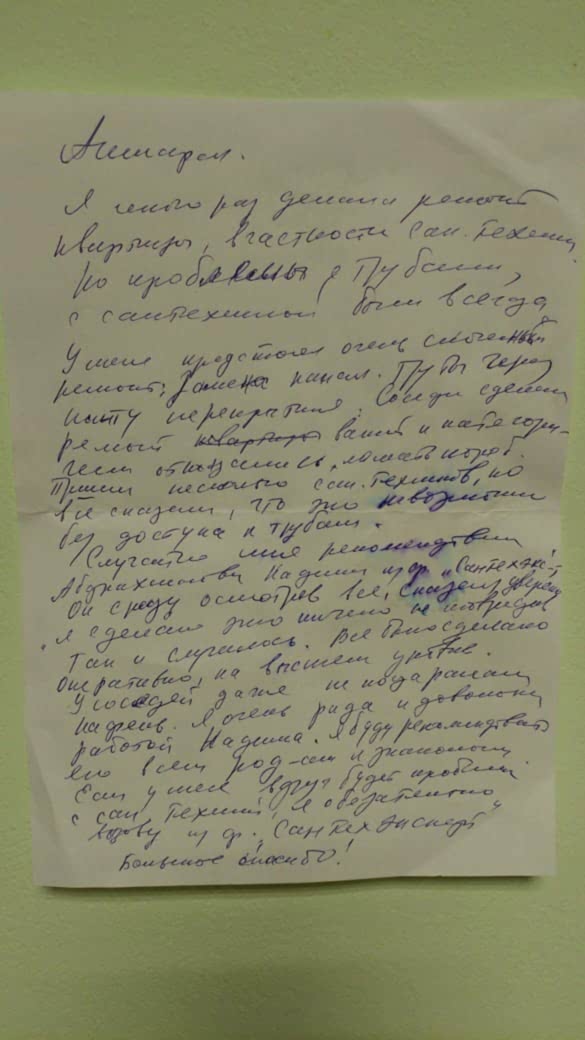 Я много раз делала ремонт
квартиры, в частности сан. техники
Но проблемы с трубами,
с сантехникой были всегда
У меня предстоял очень сложный
ремонт: Замена канал. трубы через
плиту перекрытия. Соседи сделали
ремонт квартиры ванны и катего-
чески отказались ломать короб.
Пришли несколько сан. техников, но
все сказали, что это невозможно
без доступа к трубам.
Случайно мне рекомендовали
Надима из ф. "Сантехэкс-т
Он сразу осмотрев все, сказал уверено
"я сделаю это ничего не повредив
Так и случилось. Все было сделано
Оперативно, на высшем уровне.
У соседей даже не поцарапали
кафель. Я очень рада и довольна
работой Надима. Я буду рекомендовать
его всем род-ым и знакомым
Если у меня вдруг будет проблемы
с сан техникой, я обязательно
вызову из ф. "СанТехЭксперт"
Большое спасибо!